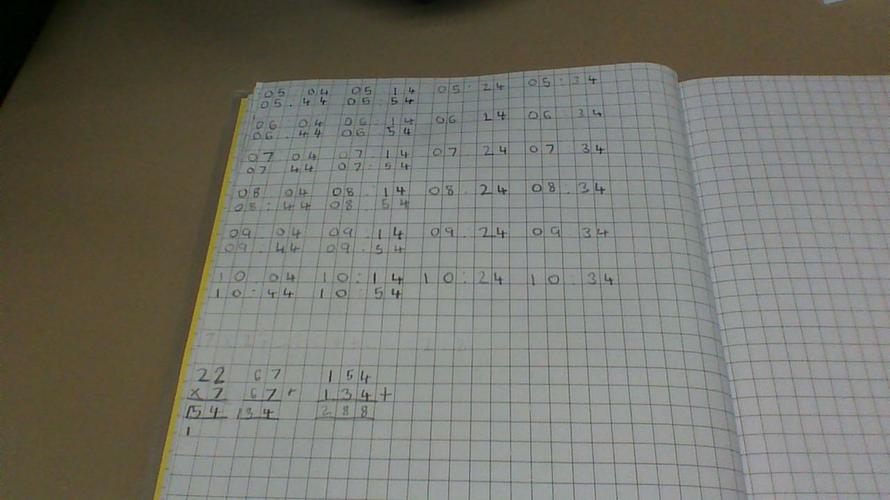 05 04 05 14 05:24 05:34
05.44 05:54
06 04 06:14 06 24 06 34
06.44 06 54
07 04 07:14 07.24 07 34
07 44 07:54
08 04 08:14 08.24 08.34
08:44 08 54
09 04 09:14 09:24 09 34
09 44 09.54
10:04 10:14 10:24 10:34
10:44 10:54
22 67 154
x7 67+ 134+
154 134 288
1